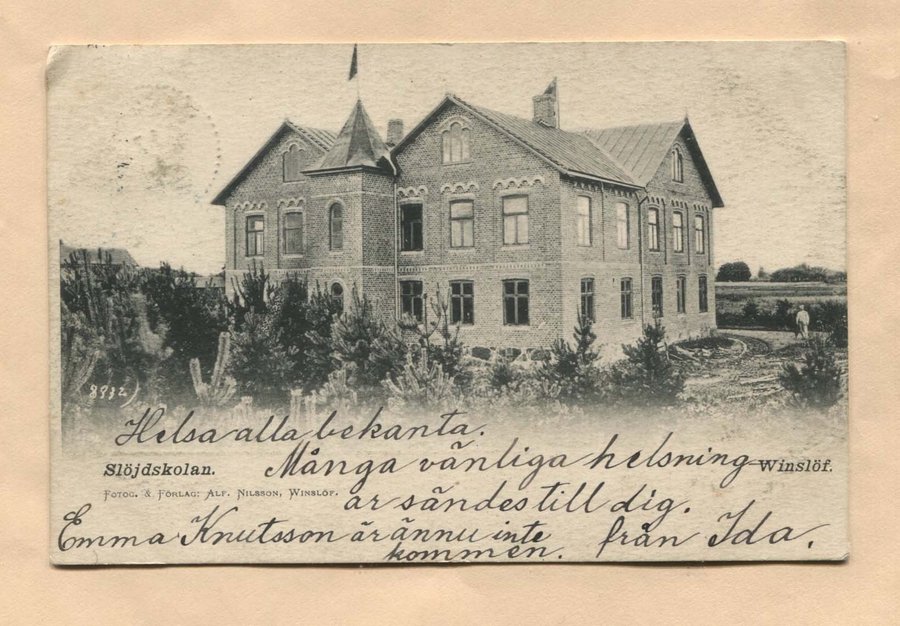 8932)
Helsa alla bekanta.
Slöjdskolan.
Många vänliga helsning-
Winslöf.
Fotog. & Förlag: Alf. Nilsson, Winslöf.
ar sändes till dig.
Emma Knutsson är ännu inte
kommen.
från Ida.